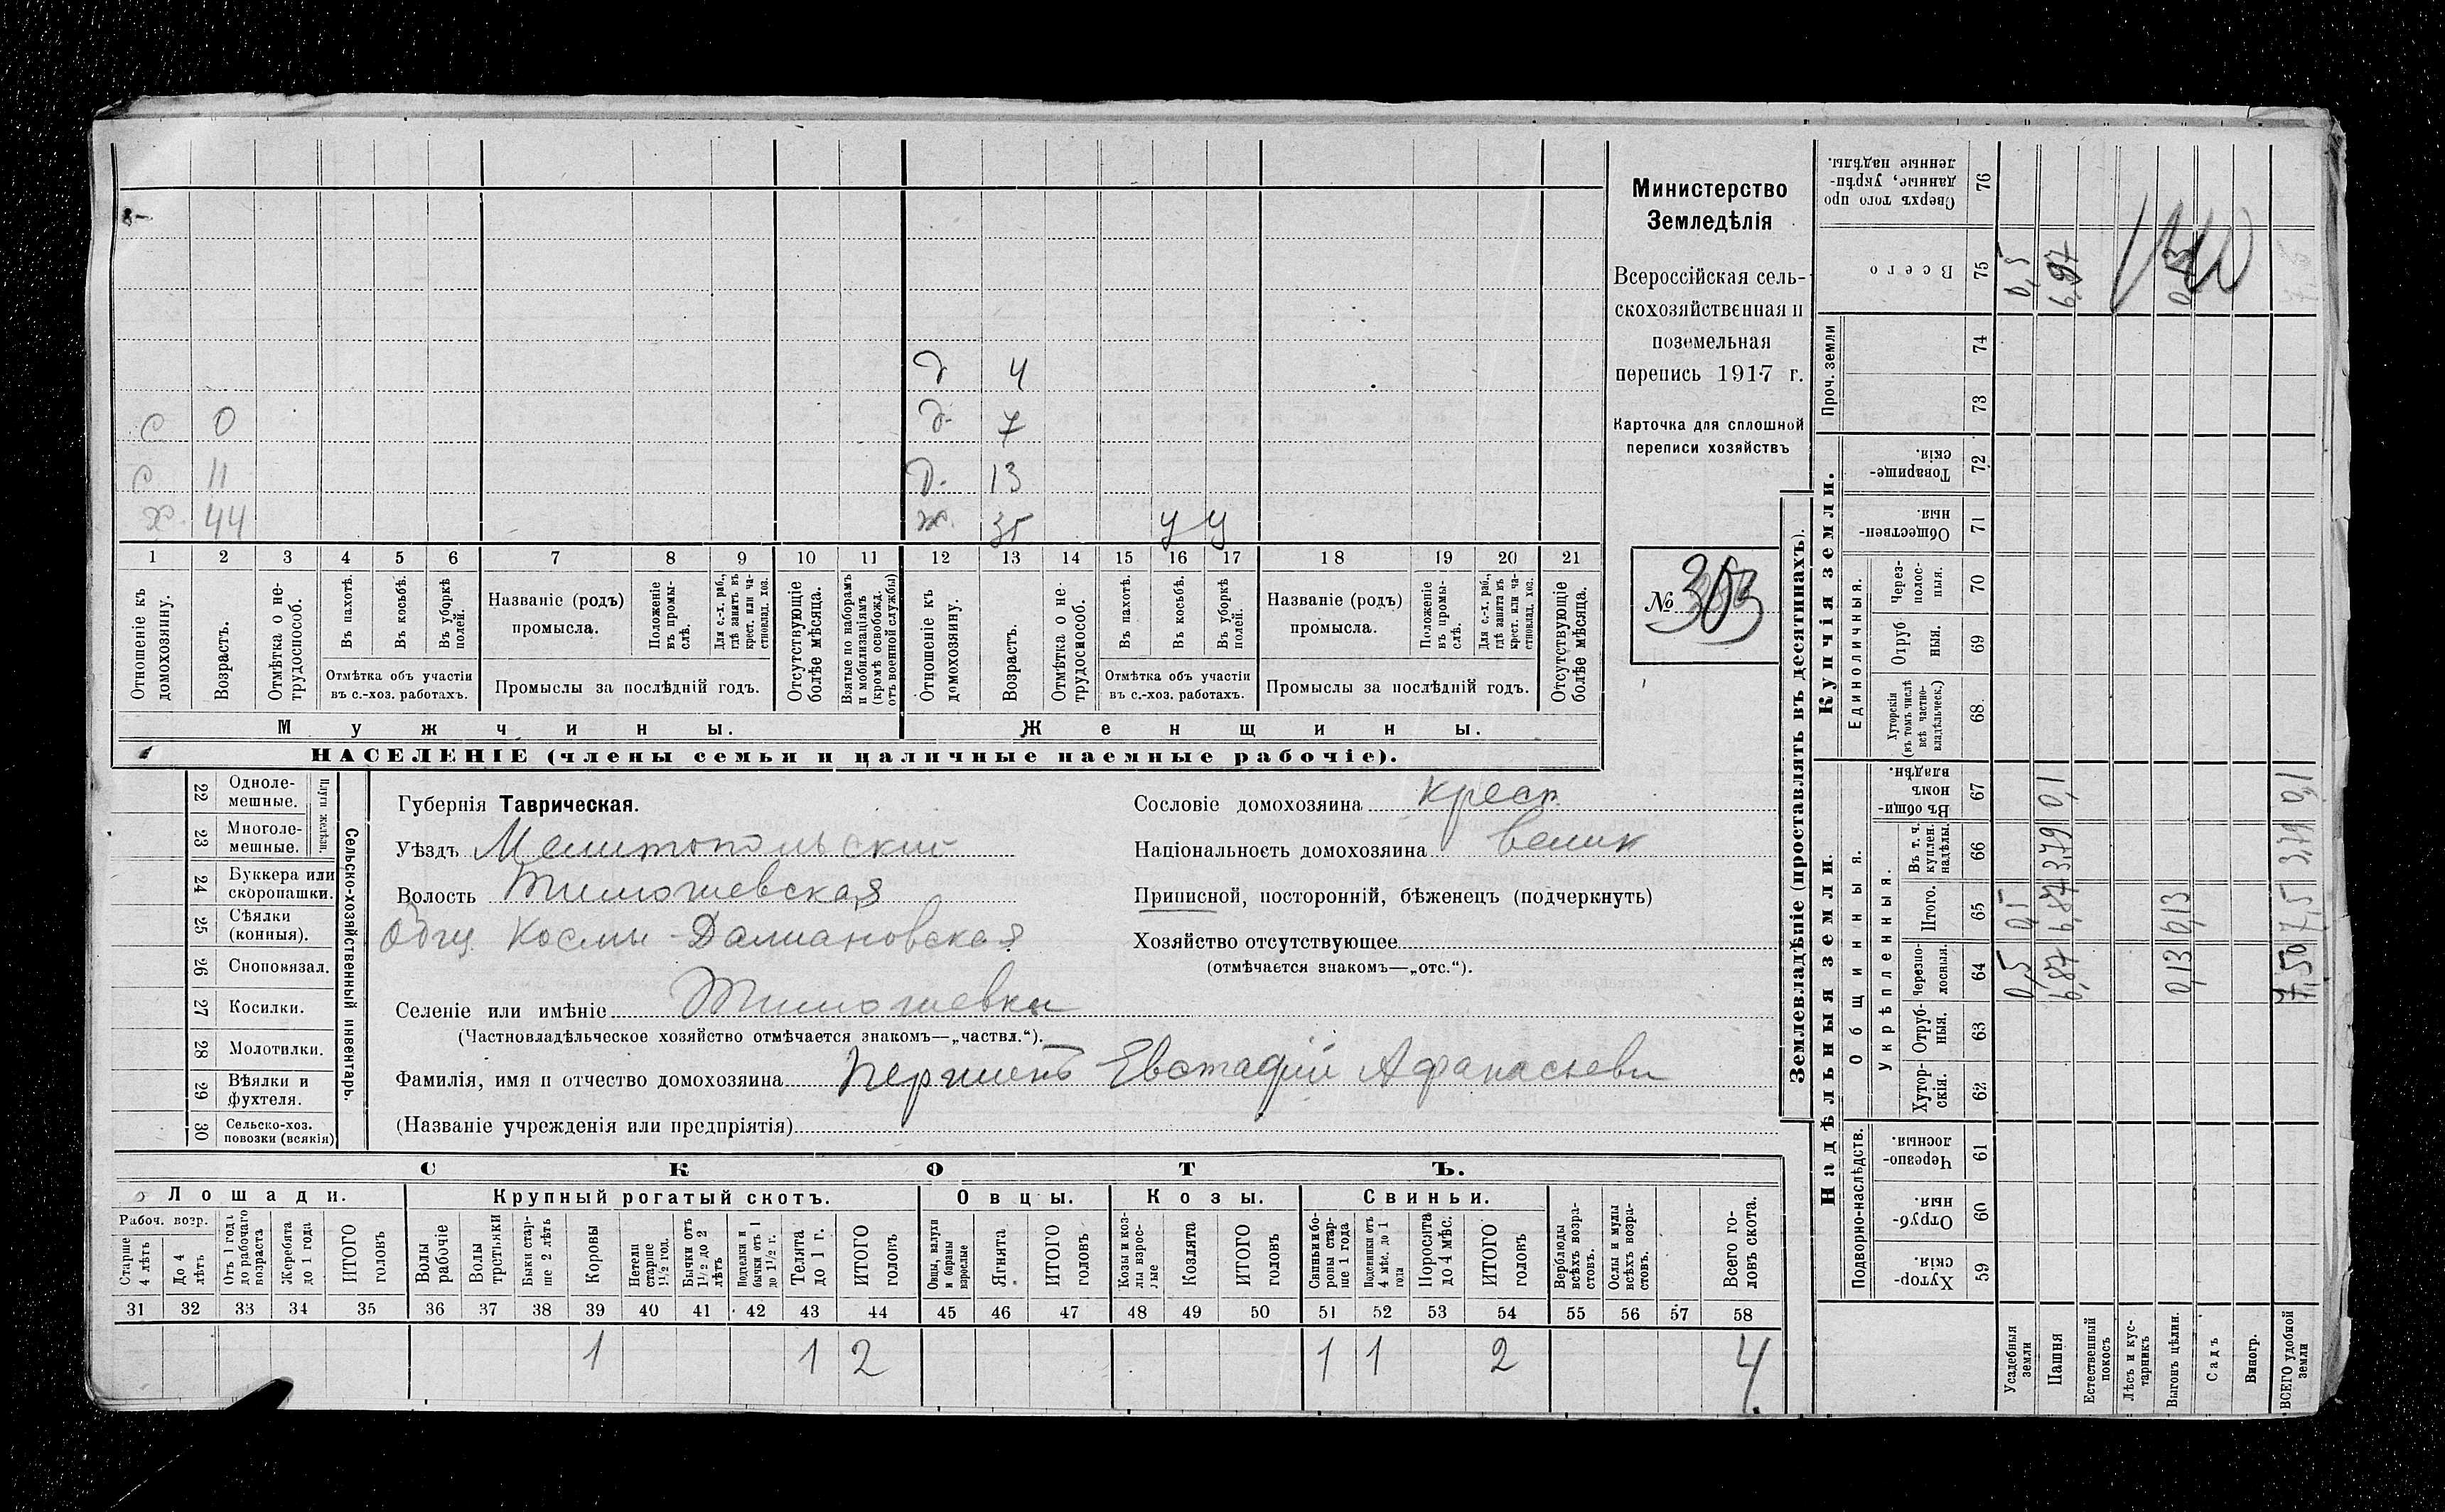 Министерство
Земледѣлія
Всероссійская сель-
скохозяйственная и
поземельная
перепись 1917 г.
Карточка для сплошной
переписи хозяйствъ
№ 353
д 4
с 0 д. 7
с 11 д. 13
х. 44 ж. 35 у у
1 2 3 4 5 6 7 8 9 10 11 12 13 14 15 16 17 18 19 20 21
Отношеніе къ домохозяину.
Возрастъ.
Отмѣтка о не-трудоспособ.
Въ пахотѣ.
Въ косьбѣ.
Въ уборкѣ полей.
Отмѣтка объ участіи
въ с.-хоз. работахъ.
Названіе (родъ)
промысла.
Положеніе въ промы-слѣ.
Для с.-х. раб., гдѣ занятъ въ крест. или ча-стновлад. хоз.
Промыслы за послѣдній годъ.
Отсутствующіе болѣе мѣсяца.
Взятые по наборамъ и мобилизаціямъ (кромѣ освобожд. отъ военной службы)
Отношеніе къ домохозяину.
Возрастъ.
Отмѣтка о не-трудоспособ.
Въ пахотѣ.
Въ косьбѣ.
Въ уборкѣ полей.
Отмѣтка объ участіи
въ с.-хоз. работахъ.
Названіе (родъ)
промысла.
Положеніе въ промы-слѣ.
Для с.-х. раб., гдѣ занята въ крест. или ча-стновлад. хоз.
Промыслы за послѣдній годъ.
Отсутствующіе болѣе мѣсяца.
Мужчины. Женщины.
НАСЕЛЕНІЕ (члены семьи и наличные наемные рабочіе).
22 Одноле-мешные.
23 Многоле-мешные.
Плуги желѣзн.
24 Буккера или скоропашки.
25 Сѣялки (конныя).
26 Сноповязал.
27 Косилки.
28 Молотилки.
29 Вѣялки и фухтеля.
30 Сельско-хоз. повозки (всякія)
Сельско-хозяйственный инвентарь.
Губернія Таврическая.
Уѣздъ Мелитопольский
Волость Тимошевская
Общ. Космы-Дамиановская
Селеніе или имѣніе Тимошевка
(Частновладѣльческое хозяйство отмѣчается знакомъ—„частвл.“).
Фамилія, имя и отчество домохозяина Евстафій Афанасьевъ
(Названіе учрежденія или предпріятія)
Сословіе домохозяина крест.
Національность домохозяина велик
Приписной, посторонній, бѣженецъ (подчеркнуть)
Хозяйство отсутствующее
(отмѣчается знакомъ—„отс.“).
СКОТЪ.
Лошади. Крупный рогатый скотъ. Овцы. Козы. Свиньи.
Рабоч. возр.
Старше 4 лѣтъ
До 4 лѣтъ
Отъ 1 года до рабочаго возраста
Жеребята до 1 года
ИТОГО головъ
Волы рабочіе
Волы третьяки
Быки стар-ше 2 лѣтъ
Коровы
Нетели старше 1½ год.
Бычки отъ 1½ до 2 лѣтъ
Подтелки и бычки отъ 1 до 1½ г.
Телята до 1 г.
ИТОГО головъ
Овцы, валухи и бараны взрослые
Ягнята
ИТОГО головъ
Козы и коз-лы взрос-лые
Козлята
ИТОГО головъ
Свиньи и бо-ровы стар-ше 1 года
Подсвинки отъ 4 мѣс. до 1 года
Поросята до 4 мѣс.
ИТОГО головъ
Верблюды всѣхъ возра-стовъ.
Ослы и мулы всѣхъ возра-стовъ.
Всего го-ловъ скота.
31 32 33 34 35 36 37 38 39 40 41 42 43 44 45 46 47 48 49 50 51 52 53 54 55 56 57 58
1 1 2 1 1 2 4
Землевладѣніе (проставлять въ десятинахъ).
Надѣльныя земли. Купчія земли. Проч. земли
Подворно-наслѣдств.
Общинныя.
Укрѣпленныя.
Единоличныя.
Хутор-скія. 59
Отруб-ныя. 60
Черезпо-лосныя. 61
Хутор-скія. 62
Отруб-ныя. 63
Черезпо-лосныя. 64
Итого. 65
Въ т. ч. куплен. надѣлы. 66
Въ общи-номъ владѣн. 67
Хуторскія (въ томъ числѣ всѣ частно-владѣльческ.) 68
Отруб ныя. 69
Через-полос-ныя. 70
Обществен-ныя. 71
Товарище-скія. 72
73
74
Всего 75
Сверхъ того про данные, укрѣп-ленные надѣлы. 76
Усадебныя земли 0,5 0,5 0,5
Пашня 6,87 6,87 3,79 0,1 6,97
Естественный покосъ
Лѣсъ и кус-тарникъ
Выгонъ цѣлин. 0,13 0,13
Садъ
Виногр.
ВСЕГО удобной земли 7,50 7,5 3,79 0,1